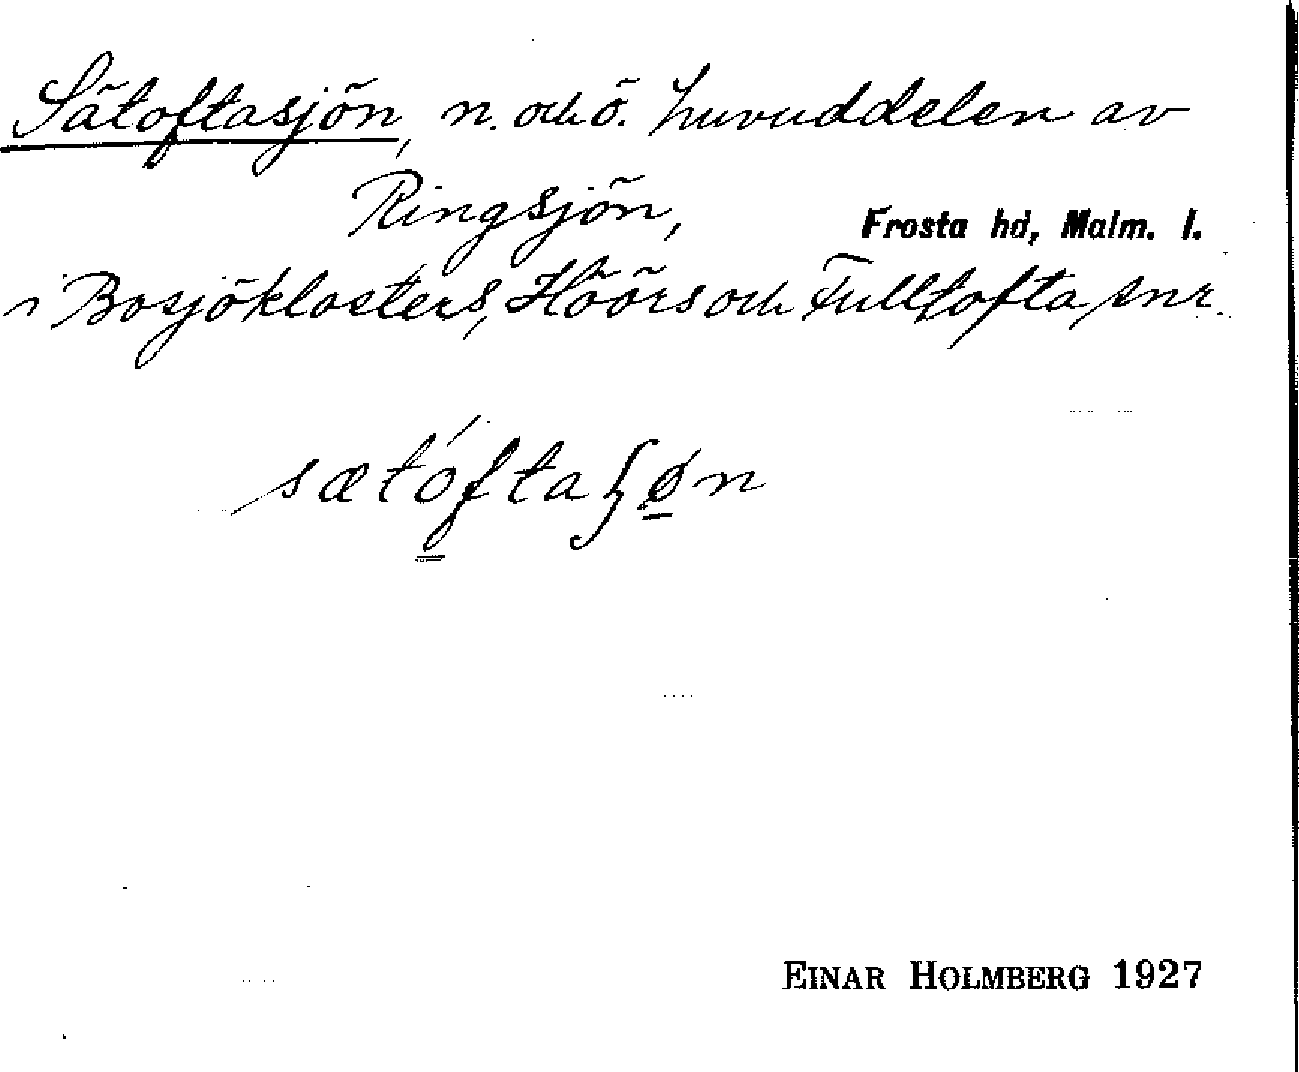 Sätoftasjön, n. och ö. huvuddelen av
Ringsjön,
Frosta hd, Malm. l.
i Bosjöklosters, Höörs och Fulltofta snr.
sætóftaʃøn
EINAR HOLMBERG 1927